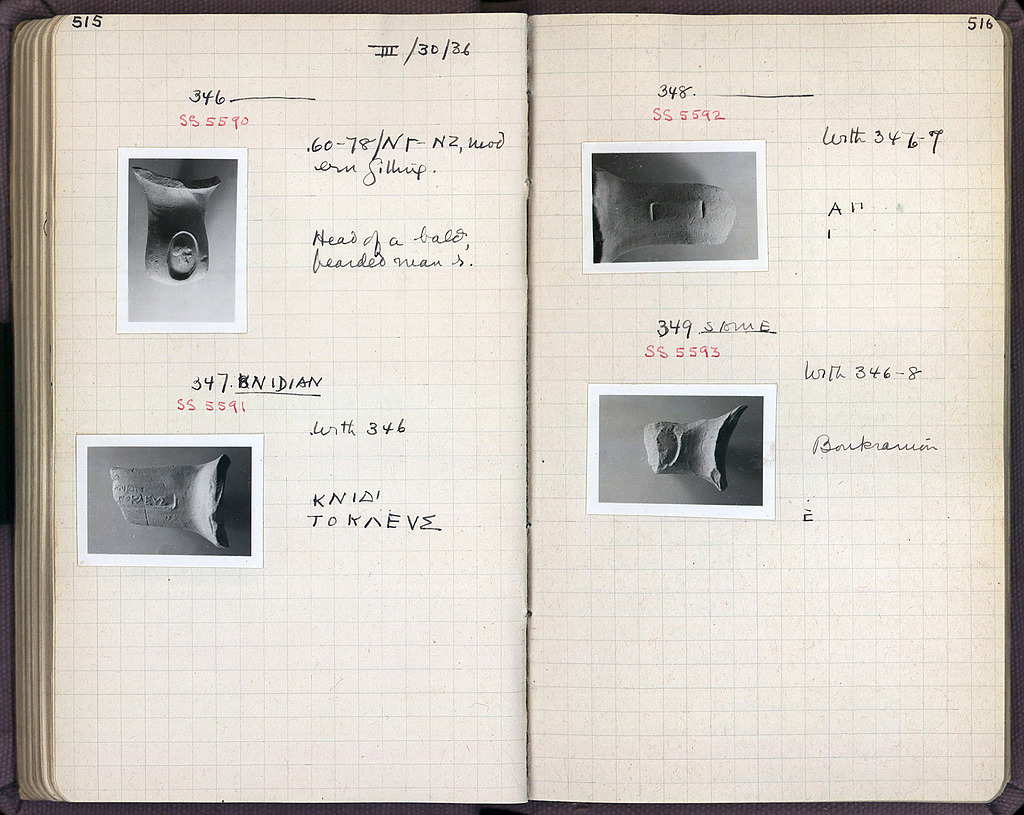 515
III/30/36
346
SS 5590
.60-78/NT-NZ, mod
ern filling.
Head of a bald,
bearded man r.
347. KNIDIAN
SS 5591
With 346
ΚΝΙΔΙ
ΤΟΚΛΕΥΣ
516
348.
SS 5592
With 346-7
Α Π
Ι
349 SAME
SS 5593
With 346-8
Boukranion
Ε